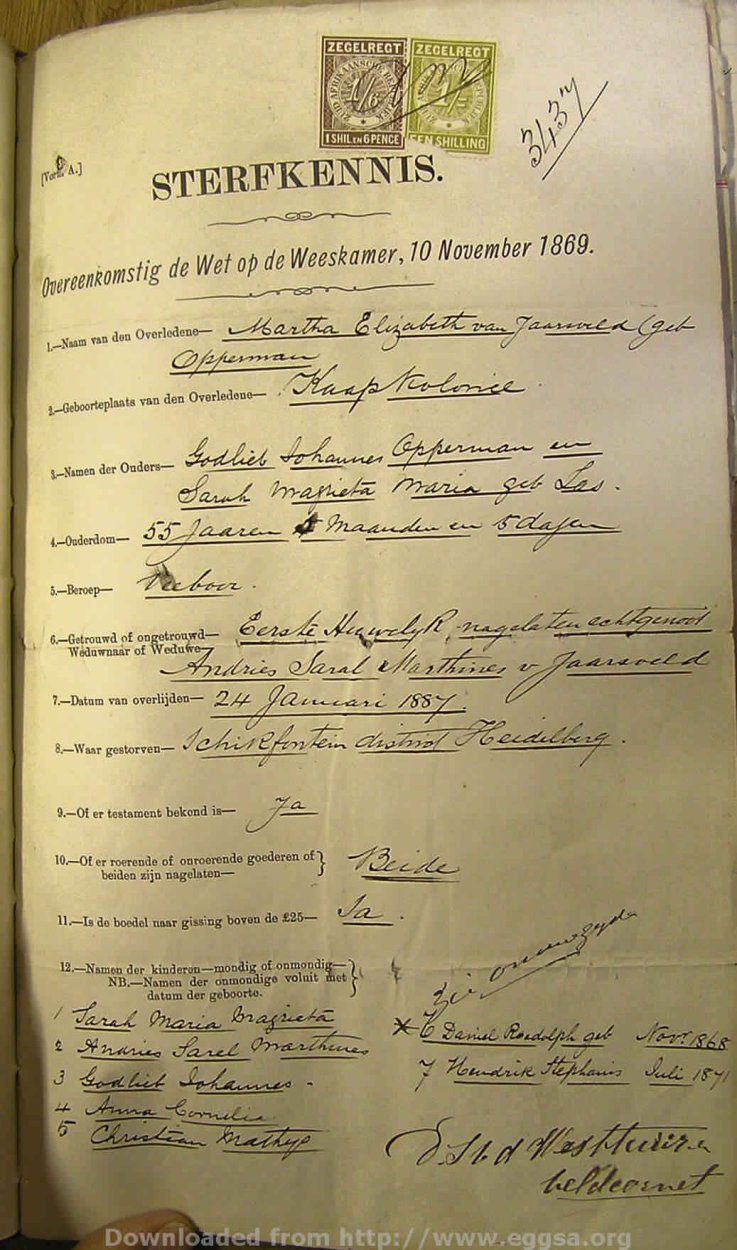 ZEGELREGT ZEGELREGT
ZUID AFRIKAANSCHE
1/6 1/=
1 SHIL EN 6 PENCE EEN SHILLING
3437
[Vorm A.]
STERFKENNIS.
Overeenkomstig de Wet op de Weeskamer, 10 November 1869.
1.—Naam van den Overledene— Martha Elizabeth van Jaarsveld (geb
Opperman
2.—Geboorteplaats van den Overledene— Kaap Kolonie
3.—Namen der Ouders— Godlieb Johannes Opperman en
Sarah Magrieta Maria geb Las.
4.—Ouderdom— 55 Jaaren Maanden en 5 dagen
5.—Beroep— Veeboer.
6.—Getrouwd of ongetrouwd— Eerste Huwelyk, nagelaten echtgenoot
Weduwnaar of Weduwe—
Andries Saral Marthines v Jaarsveld
7.—Datum van overlijden— 24 Januari 1887.
8.—Waar gestorven— Schikfontein district Heidelberg.
9.—Of er testament bekend is— Ja
10.—Of er roerende of onroerende goederen of } Beide
beiden zijn nagelaten—
11.—Is de boedel naar gissing boven de £25— Ja.
12.—Namen der kinderen—mondig of onmondig—}
NB.—Namen der onmondige voluit met
datum der geboorte.
zie ommezyde
1 Sarah Maria Magrieta
2 Andries Sarel Marthines
3 Godlieb Johannes -
4 Anna Cornelia
5 Christian Mathys
× 6 Daniel Roedolph geb Novr 1868
7 Hendrik Stephanis Juli 1871
d Westhuizen
Veldcornet
Downloaded from http://www.eggsa.org